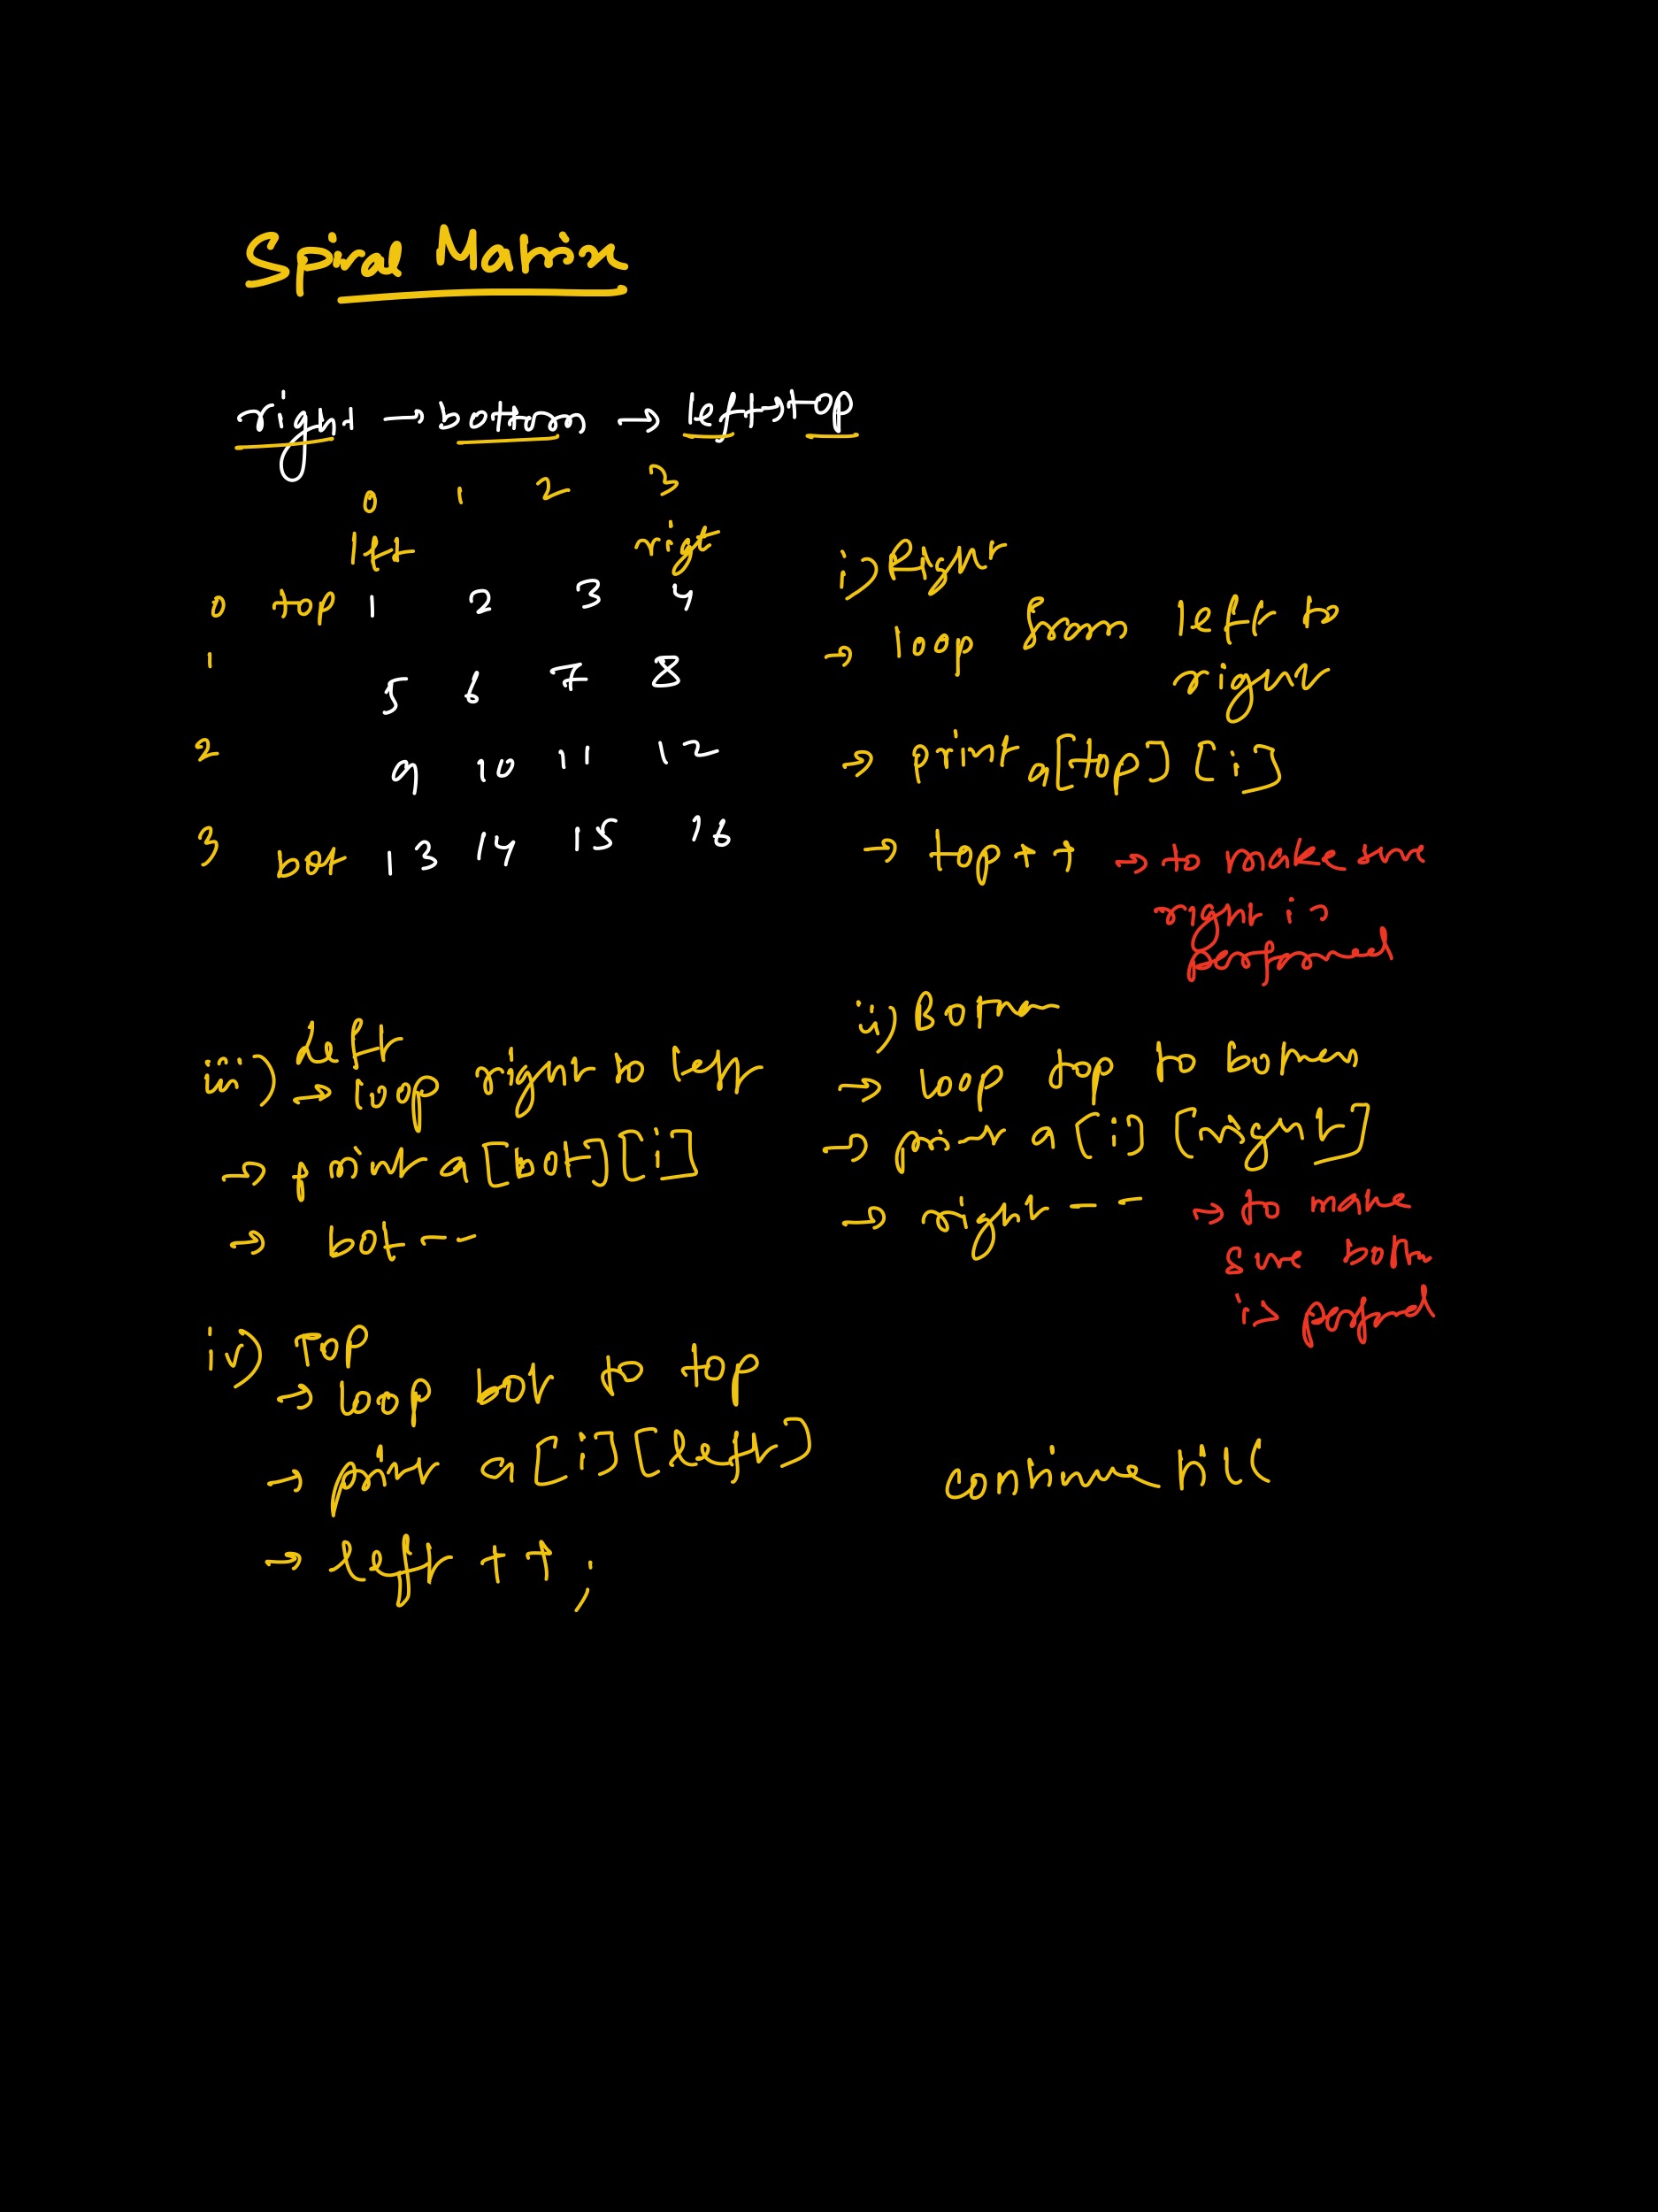 Spiral Matrix
right → bottom → left → top
0 1 2 3
lft rigt
0 top 1 2 3 4
1 5 6 7 8
2 9 10 11 12
3 bot 13 14 15 16
i) Right
→ loop from left to
right
→ print a[top][i]
→ top++ → to make sure
right is
performed
ii) Bottom
→ loop top to bottom
→ print a[i][right]
→ right-- → to make
sure bottm
is perfmd
iii) Left
→ loop right to left
→ print a[bot][i]
→ bot--
iv) TOP
→ loop bot to top
→ print a[i][left]
→ left++;
continue till